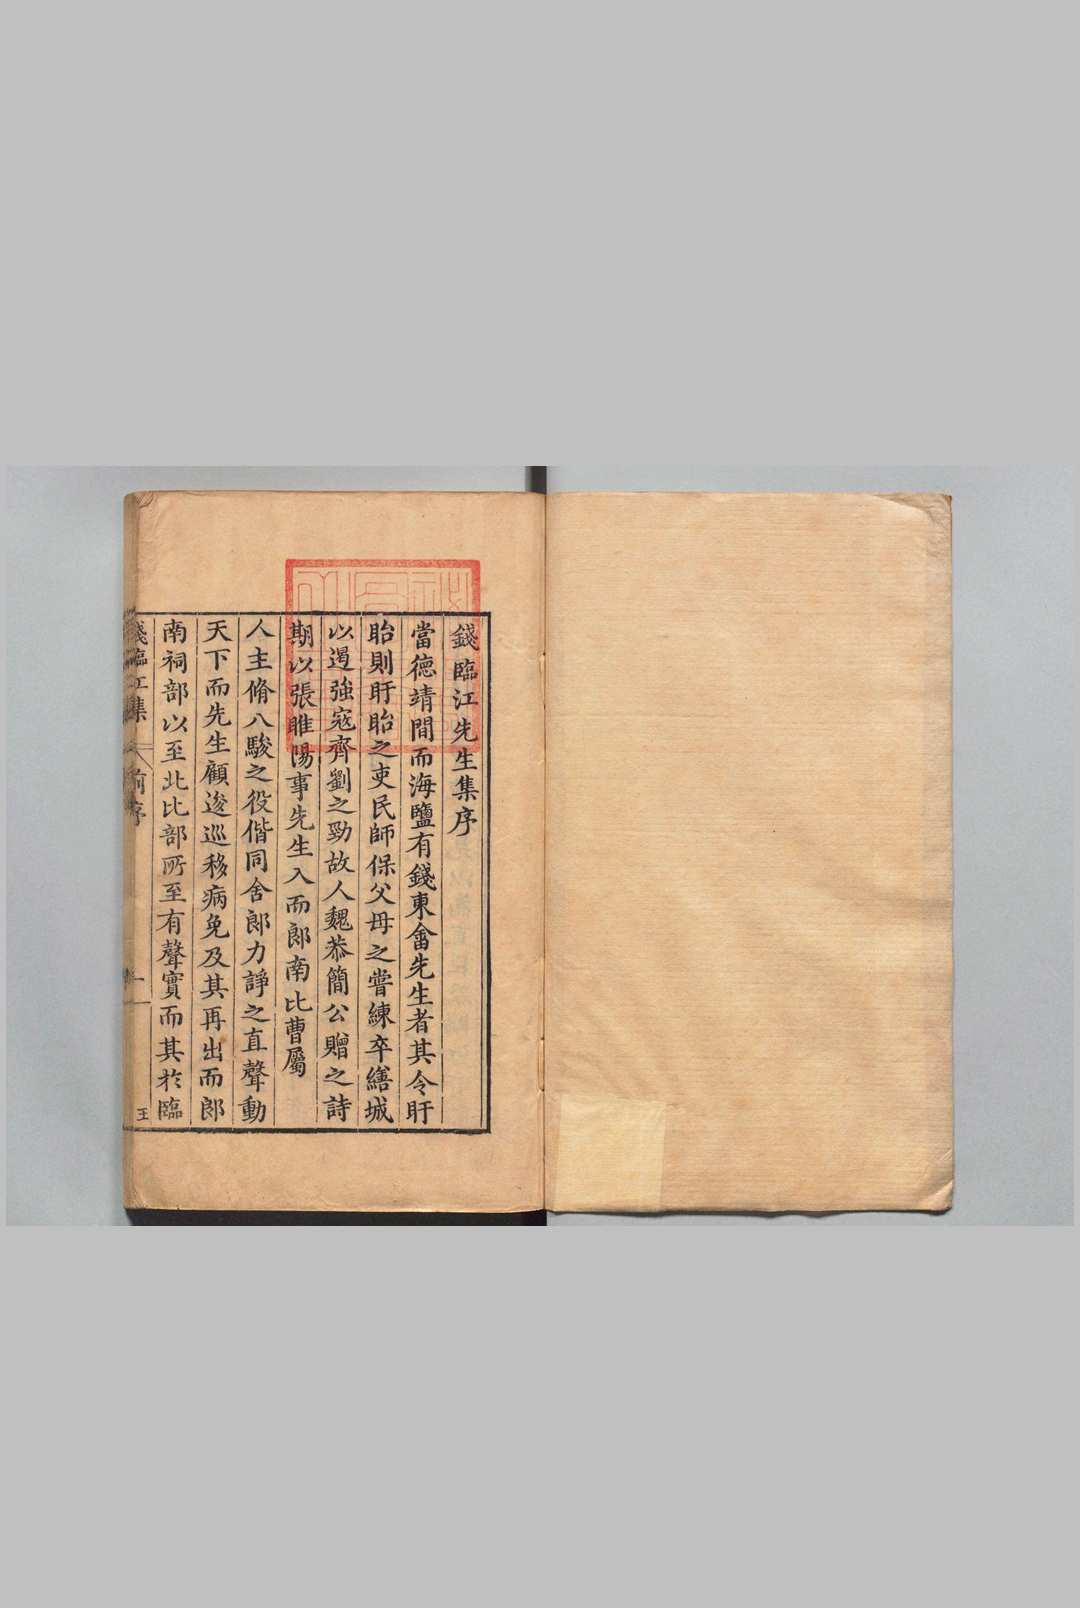 錢臨江先生集序
當德靖間而海鹽有錢東畬先生者其令盱
眙則盱眙之吏民師保父母之嘗練卒繕城
以遏強寇齊劉之勁故人魏恭簡公贈之詩
期以張睢陽事先生入而郎南比曹屬
人主脩八駿之役偕同舍郎力諍之直聲動
天下而先生顧逡巡移病免及其再出而郎
南祠部以至北比部所至有聲實而其於臨
錢臨江集
前序
一
王